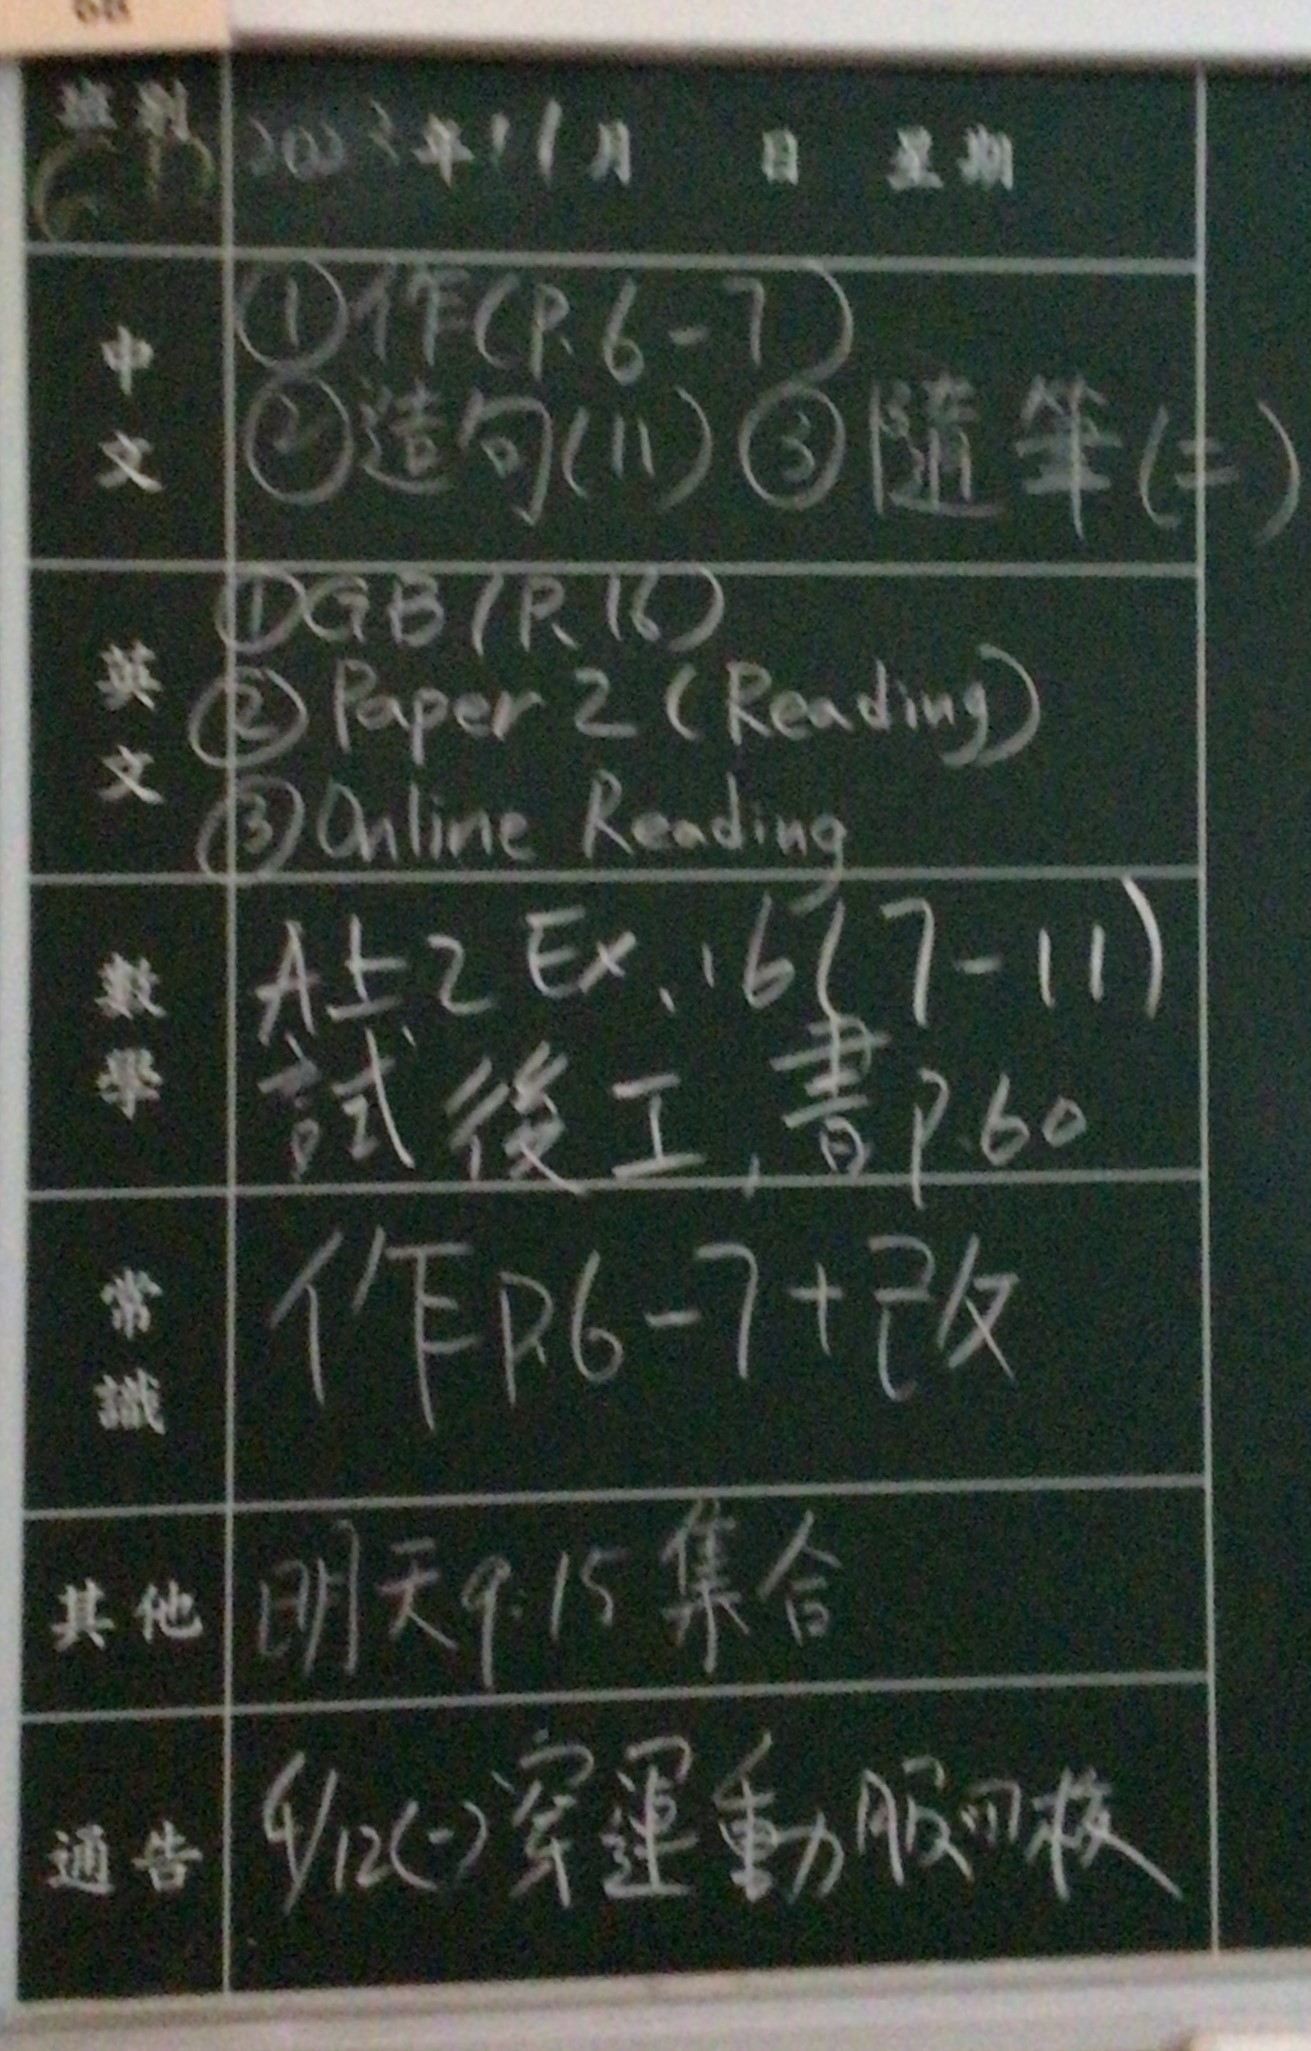 班別 2023年11月 日 星期
中文
①作(P.6-7)
②造句(11) ③隨筆(二)
英文
①GB(P.16)
②Paper 2 (Reading)
③Online Reading
數學
A上2 Ex.16(7-11)
試後工,書P.60
常識
作P.6-7+改
其他 明天9:15集合
通告 4/12(一)穿運動服回校